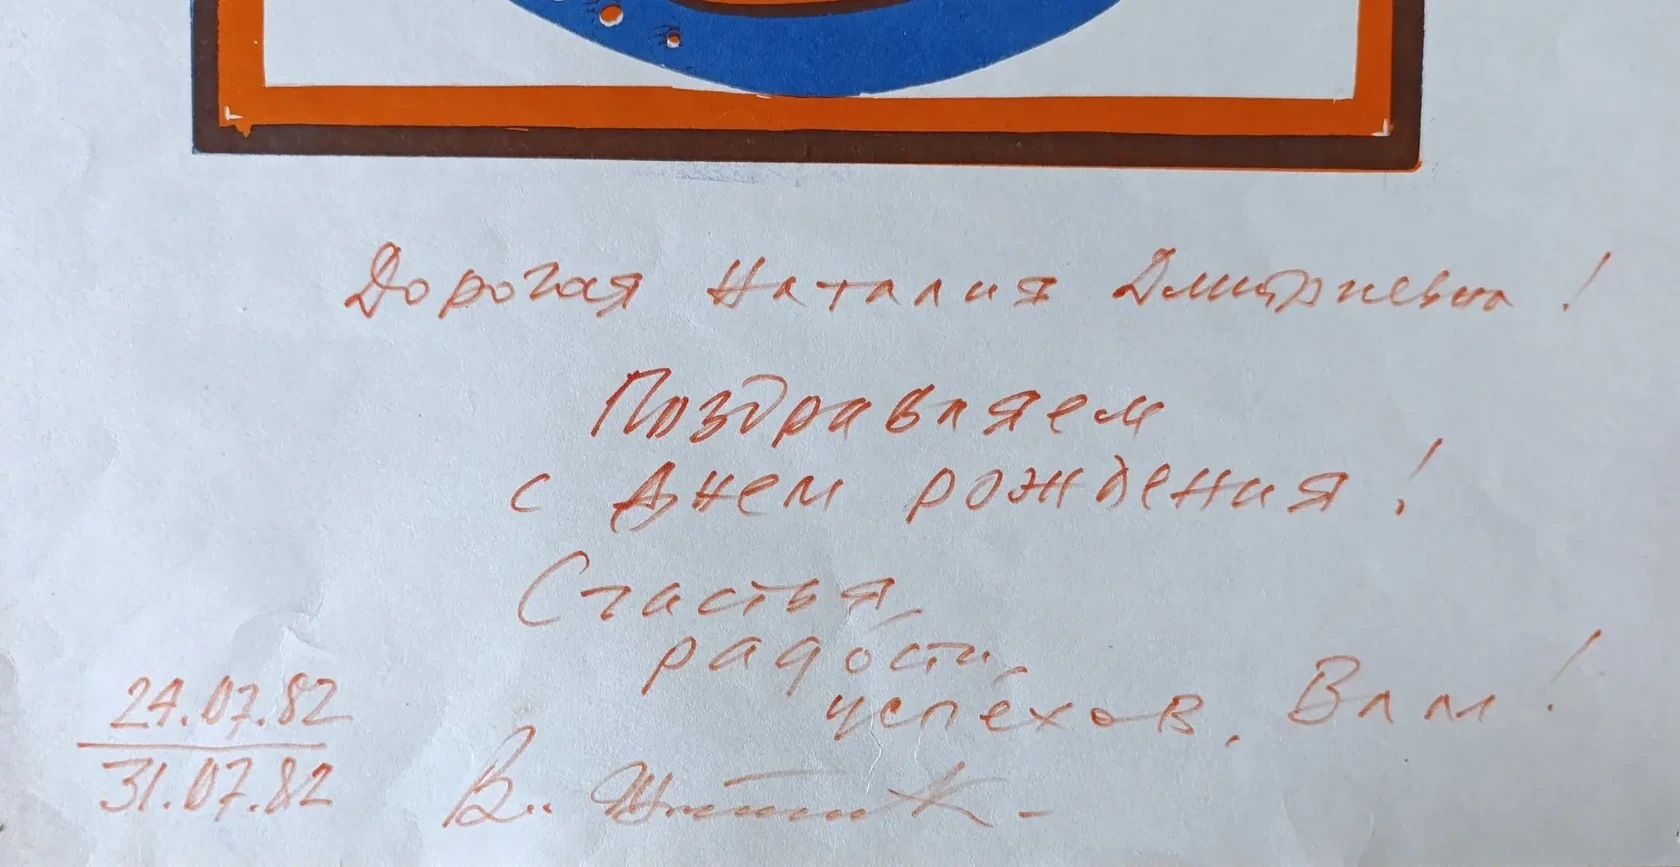 Дорогая Наталия Дмитриевна!
Поздравляем
с Днем рождения!
Счастья,
радости,
успехов, Вам!
24.07.82
31.07.82
В.